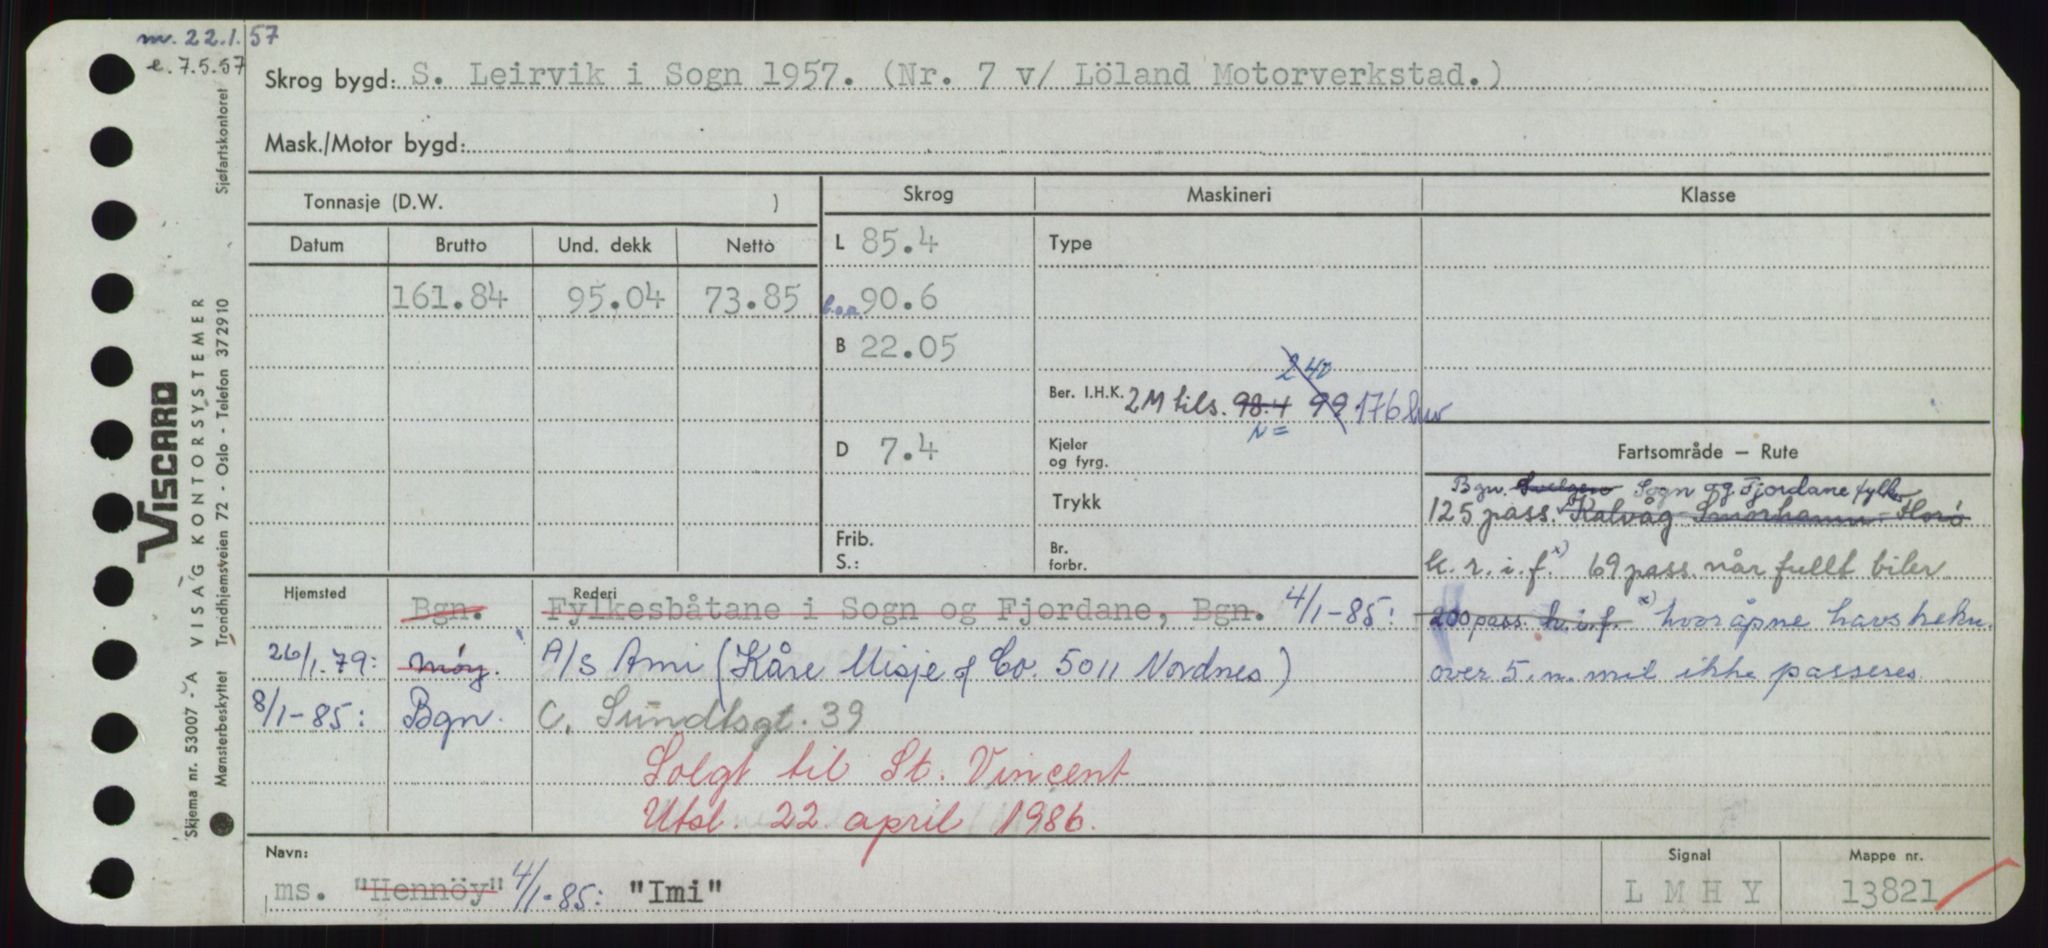 m. 22.1.57
e. 7.5.57
Skrog bygd: S. Leirvik i Sogn 1957. (Nr. 7 v/ Löland Motorverkstad.)
Mask./Motor bygd:
Tonnasje (D.W. )
Skrog
Maskineri
Klasse
Datum
Brutto
Und. dekk
Netto
L 85.4
Type
161.84 95.04 73.85
b.o.a. 90.6
B 22.05
240
Ber. I.H.K. 2M tils. 98.4 99 176 bhw
N=
D 7.4
Kjeler
og fyrg.
Fartsområde — Rute
Trykk
Bgn. Sogn og Fjordane fylke
125 pass. Kalvåg - Smörhamn - Florö
Frib.
S.:
Br.
forbr.
k. r. i. f. x) 69 pass. når fullt biler
Hjemsted
Rederi
Bgn. Fylkesbåtane i Sogn og Fjordane, Bgn. 4/1-85:
200 pass. h.i.f. x) hvor åpne havstrekn.
26/1.79: Möy. A/S Ami (Kåre Misje & Co. 5011 Nordnes)
over 5. n. mil ikke passeres
8/1-85: Bgn. C. Sundtsgt. 39
Solgt til St. Vincent
Utsl. 22. april 1986.
Navn:
Signal
Mappe nr.
ms. "Hennöy" 4/1-85: "Imi"
L M H Y
13821
VISCARD
VISAG KONTORSYSTEMER
Skjema nr. 53007 - A
Mønsterbeskyttet Trondhjemsveien 72 - Oslo - Telefon 372910 Sjøfartskontoret